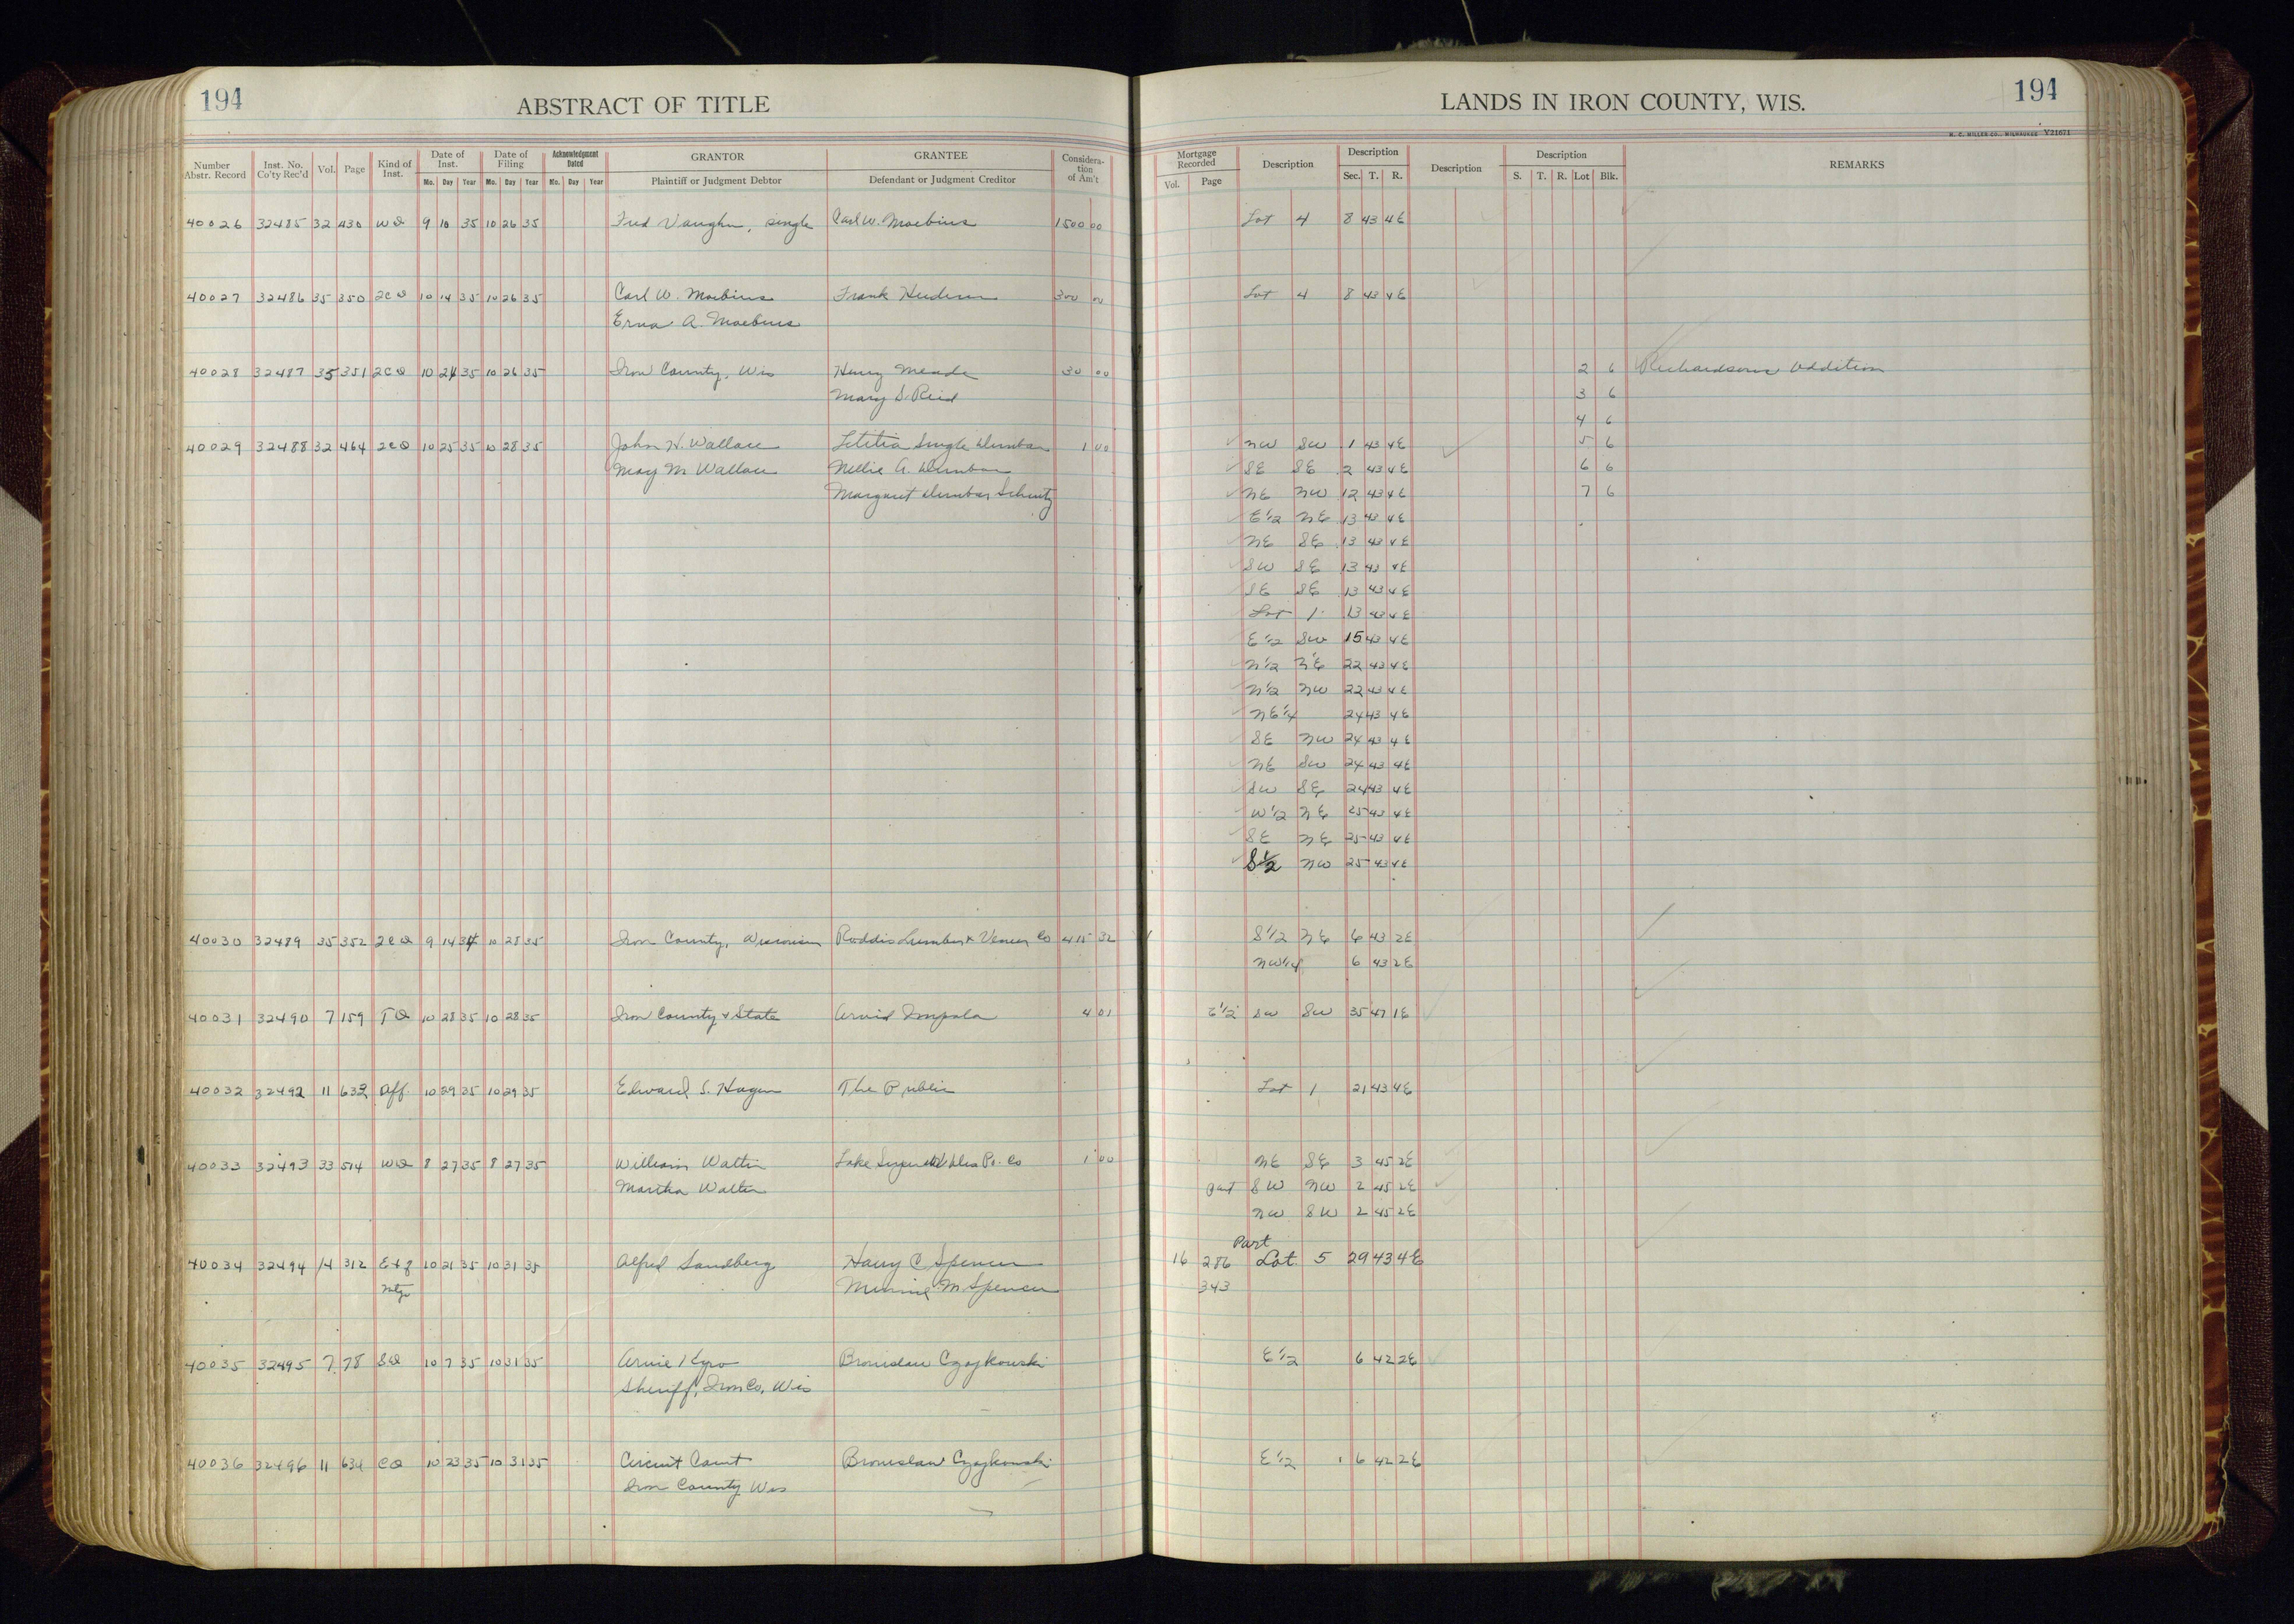 194
ABSTRACT OF TITLE
LANDS IN IRON COUNTY, WIS.
194
H. C. MILLER CO., MILWAUKEE Y21671
Number Abstr. Record | Inst. No. Co'ty Rec'd | Vol. | Page | Kind of Inst. | Date of Inst. Mo. Day Year | Date of Filing Mo. Day Year | Acknowledgment Dated Mo. Day Year | GRANTOR Plaintiff or Judgment Debtor | GRANTEE Defendant or Judgment Creditor | Consideration of Am't | Mortgage Recorded Vol. Page | Description | Description Sec. T. R. | Description | Description S. T. R. Lot Blk. | REMARKS
40026 32485 32 430 WD 9 10 35 10 26 35 Fred Vaughn, single Carl W. Moebius 1500 00 Lot 4 8 43 4E
40027 32486 35 350 2CD 10 14 35 10 26 35 Carl W. Moebius Frank 300 00 Lot 4 8 43 4E
Erna A. Moebius
40028 32487 35 351 2CD 10 24 35 10 26 35 Iron County, Wis Henry Meade 30 00 2 6 Richardsons Addition
Mary S. Reid 3 6
4 6
40029 32488 32 464 2CD 10 25 35 10 28 35 John H. Wallace Letitia Single Dunbar 1 00 NW SW 1 43 4E 5 6
May M Wallace Nellie A. Dunbar SE SE 2 43 4E 6 6
Margaret Dunbar Schutz NE NW 12 43 4E 7 6
E1/2 NE 13 43 4E
NE SE 13 43 4E
SW SE 13 43 4E
SE SE 13 43 4E
Lot 1 13 43 4E
E1/2 SW 15 43 4E
N1/2 NE 22 43 4E
N1/2 NW 22 43 4E
NE1/4 24 43 4E
SE NW 24 43 4E
NE SW 24 43 4E
SW SE 24 43 4E
W1/2 NE 25 43 4E
SE NE 25 43 4E
S1/2 NW 25 43 4E
40030 32489 35 352 2CD 9 14 34 10 28 35 Iron County, Wisconsin Roddis Lumber & Veneer Co 415 32 S1/2 NE 6 43 2E
NW1/4 6 43 2E
40031 32490 7 159 TD 10 28 35 10 28 35 Iron County & State Arvid Impola 4 01 E1/2 SW SW 35 47 1E
40032 32492 11 633 Aff. 10 29 35 10 29 35 Edward S. Hagen The Public Lot 1 21 43 4E
40033 32493 33 514 WD 8 27 35 8 27 35 William Walter Lake Superior Dist Po. Co 1 00 NE SE 3 45 2E
Martha Walter part SW NW 2 45 2E
NW SW 2 45 2E
Part
40034 32494 14 312 Ext of 10 21 35 10 31 35 Alfred Sandberg Harry C Spencer 16 286 Lot 5 29 43 4E
Mtge Minnie M. Spencer 343
40035 32495 7 78 SD 10 7 35 10 31 35 Arvie Kyro Bronislaw Czajkowski E1/2 6 42 2E
Sheriff, Iron Co, Wis
40036 32496 11 634 CD 10 23 35 10 31 35 Circuit Court Bronislaw Czajkowski E1/2 6 42 2E
Iron County Wis